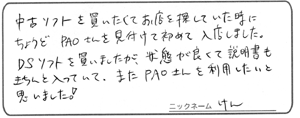 中古ソフトを買いたくてお店を探していた時に
ちょうどPAOさんを見付けて初めて入店しました。
DSソフトを買いましたが、状態が良くて説明書も
きちんと入っていて、またPAOさんを利用したいと
思いました!
ニックネーム けん